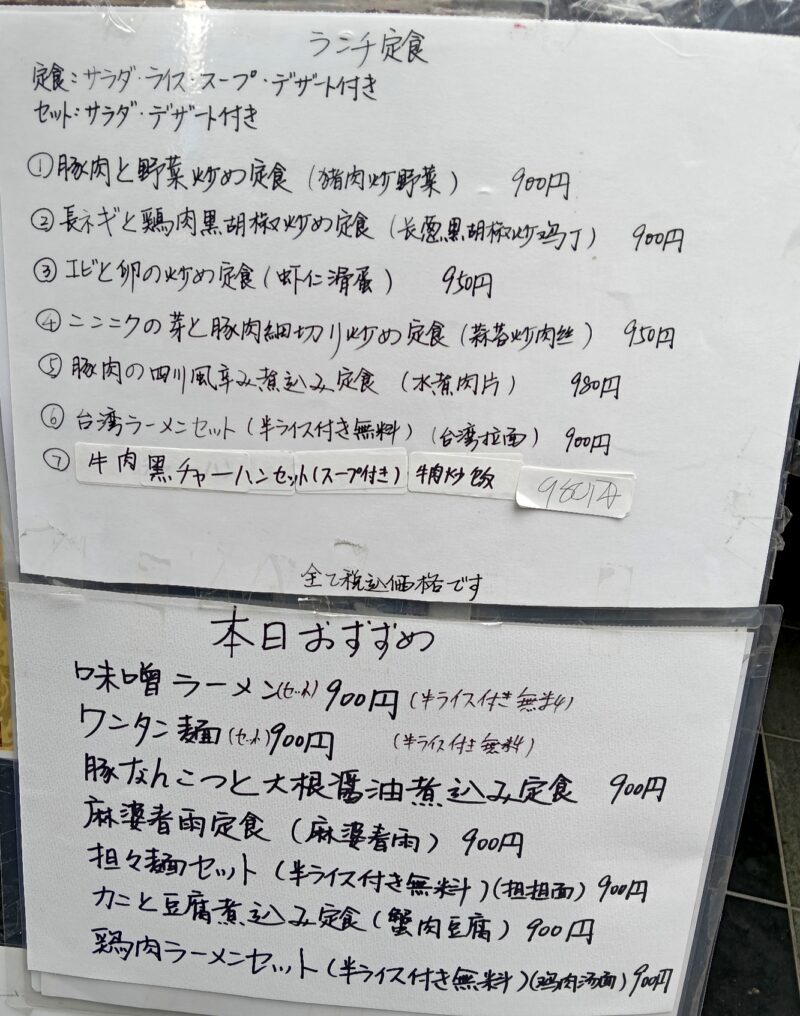 ランチ定食
定食:サラダ・ライス・スープ・デザート付き
セット:サラダ・デザート付き
①豚肉と野菜炒め定食(猪肉炒野菜) 900円
②長ネギと鶏肉黒胡椒炒め定食(长葱黒胡椒炒鸡丁) 900円
③エビと卵の炒め定食(虾仁滑蛋) 950円
④ニンニクの芽と豚肉細切り炒め定食(蒜苔炒肉丝) 950円
⑤豚肉の四川風辛み煮込み定食(水煮肉片) 980円
⑥台湾ラーメンセット(半ライス付き無料)(台湾拉面) 900円
⑦牛肉黒チャーハンセット(スープ付き) 牛肉炒饭 980円
全て税込価格です
本日おすすめ
味噌ラーメン(セット)900円(半ライス付き無料)
ワンタン麺(セット)900円 (半ライス付き無料)
豚なんこつと大根醤油煮込み定食 900円
麻婆春雨定食(麻婆春雨) 900円
担々麺セット(半ライス付き無料)(担担面) 900円
カニと豆腐煮込み定食(蟹肉豆腐) 900円
鶏肉ラーメンセット(半ライス付き無料)(鸡肉汤面) 900円